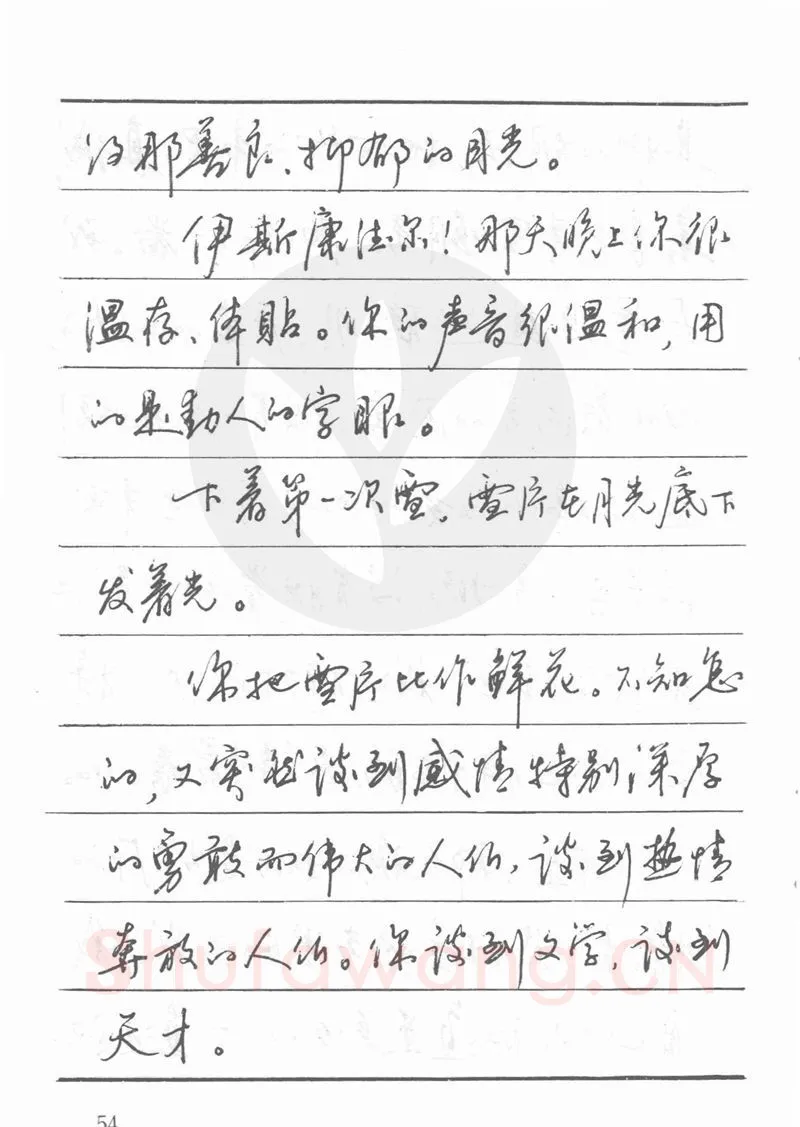 没那善良、抑郁的目光。
伊斯康德尔！那天晚上你很
温存、体贴。你的声音很温和，用
的是動人的字眼。
下着第一次雪，雪片在月光底下
发着光。
你把雪片比作鲜花。不知怎
的，又突然谈到感情特别深厚
的勇敢而伟大的人们，谈到热情
奔放的人们。你谈到文学，谈到
天才。
Shufawang.CN
54